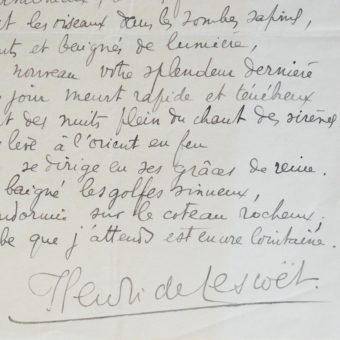 les oiseaux dans les sombres sapins,
et baignés de lumière,
nouveau votre splendeur dernière
meurt rapide et ténébreux
des nuits plein du chant des sirènes
levé à l'orient en feu
se dirige en ses grâces de reine.
baigné les golfes sinueux,
sur le coteau rocheux.
que j'attends est encore lointaine.
Henri de Lescoët.